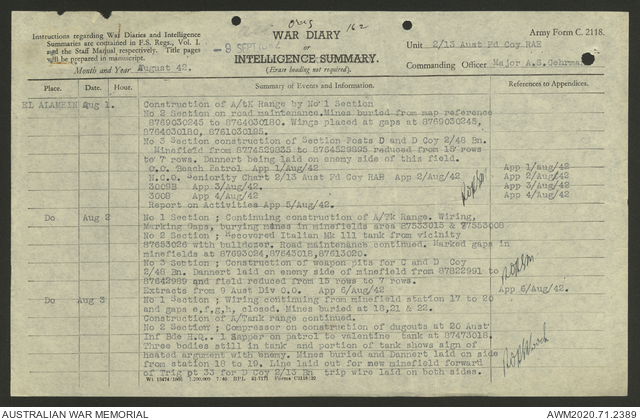 Army Form C. 2118.
WAR DIARY
or
INTELLIGENCE SUMMARY.
(Erase heading not required).
Instructions regarding War Diaries and Intelligence
Summaries are contained in F.S. Regs., Vol. I.
and the Staff Manual respectively. Title pages
will be prepared in manuscript.
Month and Year August 42.
Unit 2/13 Aust Fd Coy RAE
Commanding Officer Major A.S. Gehrman
Place. Date. Summary of Events and Information. References to Appendices.
EL ALAMEIN Aug 1. Construction of A/tk Range by No 1 Section
No 2 Section on road maintenance. Mines buried from map reference
8769030245 to 8764030180. Wings placed at gaps at 8769030245,
8764030180, 8761030195.
No 3 Section construction of Section Posts D and D Coy 2/48 Bn.
Minefield from 8774529835 to 8754529895 reduced from 15 rows
to 7 rows. Dannert being laid on enemy side of this field.
O.O. Beach Patrol App 1/Aug/42 App 1/Aug/42
N.C.O. Seniority Chart 2/13 Aust Fd Coy RAE App 2/Aug/42 App 2/Aug/42
3009B App 3/Aug/42 App 3/Aug/42
3008 App 4/Aug/42 App 4/Aug/42
Report on Activities App 5/Aug/42.
Do Aug 2 No 1 Section ; Continuing construction of A/Tk Range. Wiring,
Marking Gaps, burying mines in minefields area 87533015 & 87553008
No 2 Section ; Recovered Italian Mk 111 tank from vicinity
87653026 with bulldozer. Road maintenance continued. Marked gaps in
minefields at 87693024, 87643018, 87613020.
No 3 Section ; Construction of weapon pits for C and D Coy
2/48 Bn. Dannert laid on enemy side of minefield from 87822991 to
87642989 and field reduced from 15 rows to 7 rows.
Extracts from 9 Aust Div O.O. App 6/Aug/42 App 6/Aug/42.
Do Aug 3 No 1 Section ; Wiring continued from minefield station 17 to 20
and gaps e,f,g,h, closed. Mines buried at 18,21 & 22.
Construction of A/Tank range continued.
No 2 Section ; Compressor on construction of dugouts at 20 Aust
Inf Bde H.Q. 1 Sapper on patrol to valentine tank at 87473018.
Three bodies still in tank and portion of tank shows sign of
heated argument with enemy. Mines buried and Dannert laid on side
from station 18 to 19. Line laid out for new minefield forward
of Trig pt 33 for D Coy 2/13 Bn trip wire laid on both sides.
AUSTRALIAN WAR MEMORIAL
AWM2020.71.2389